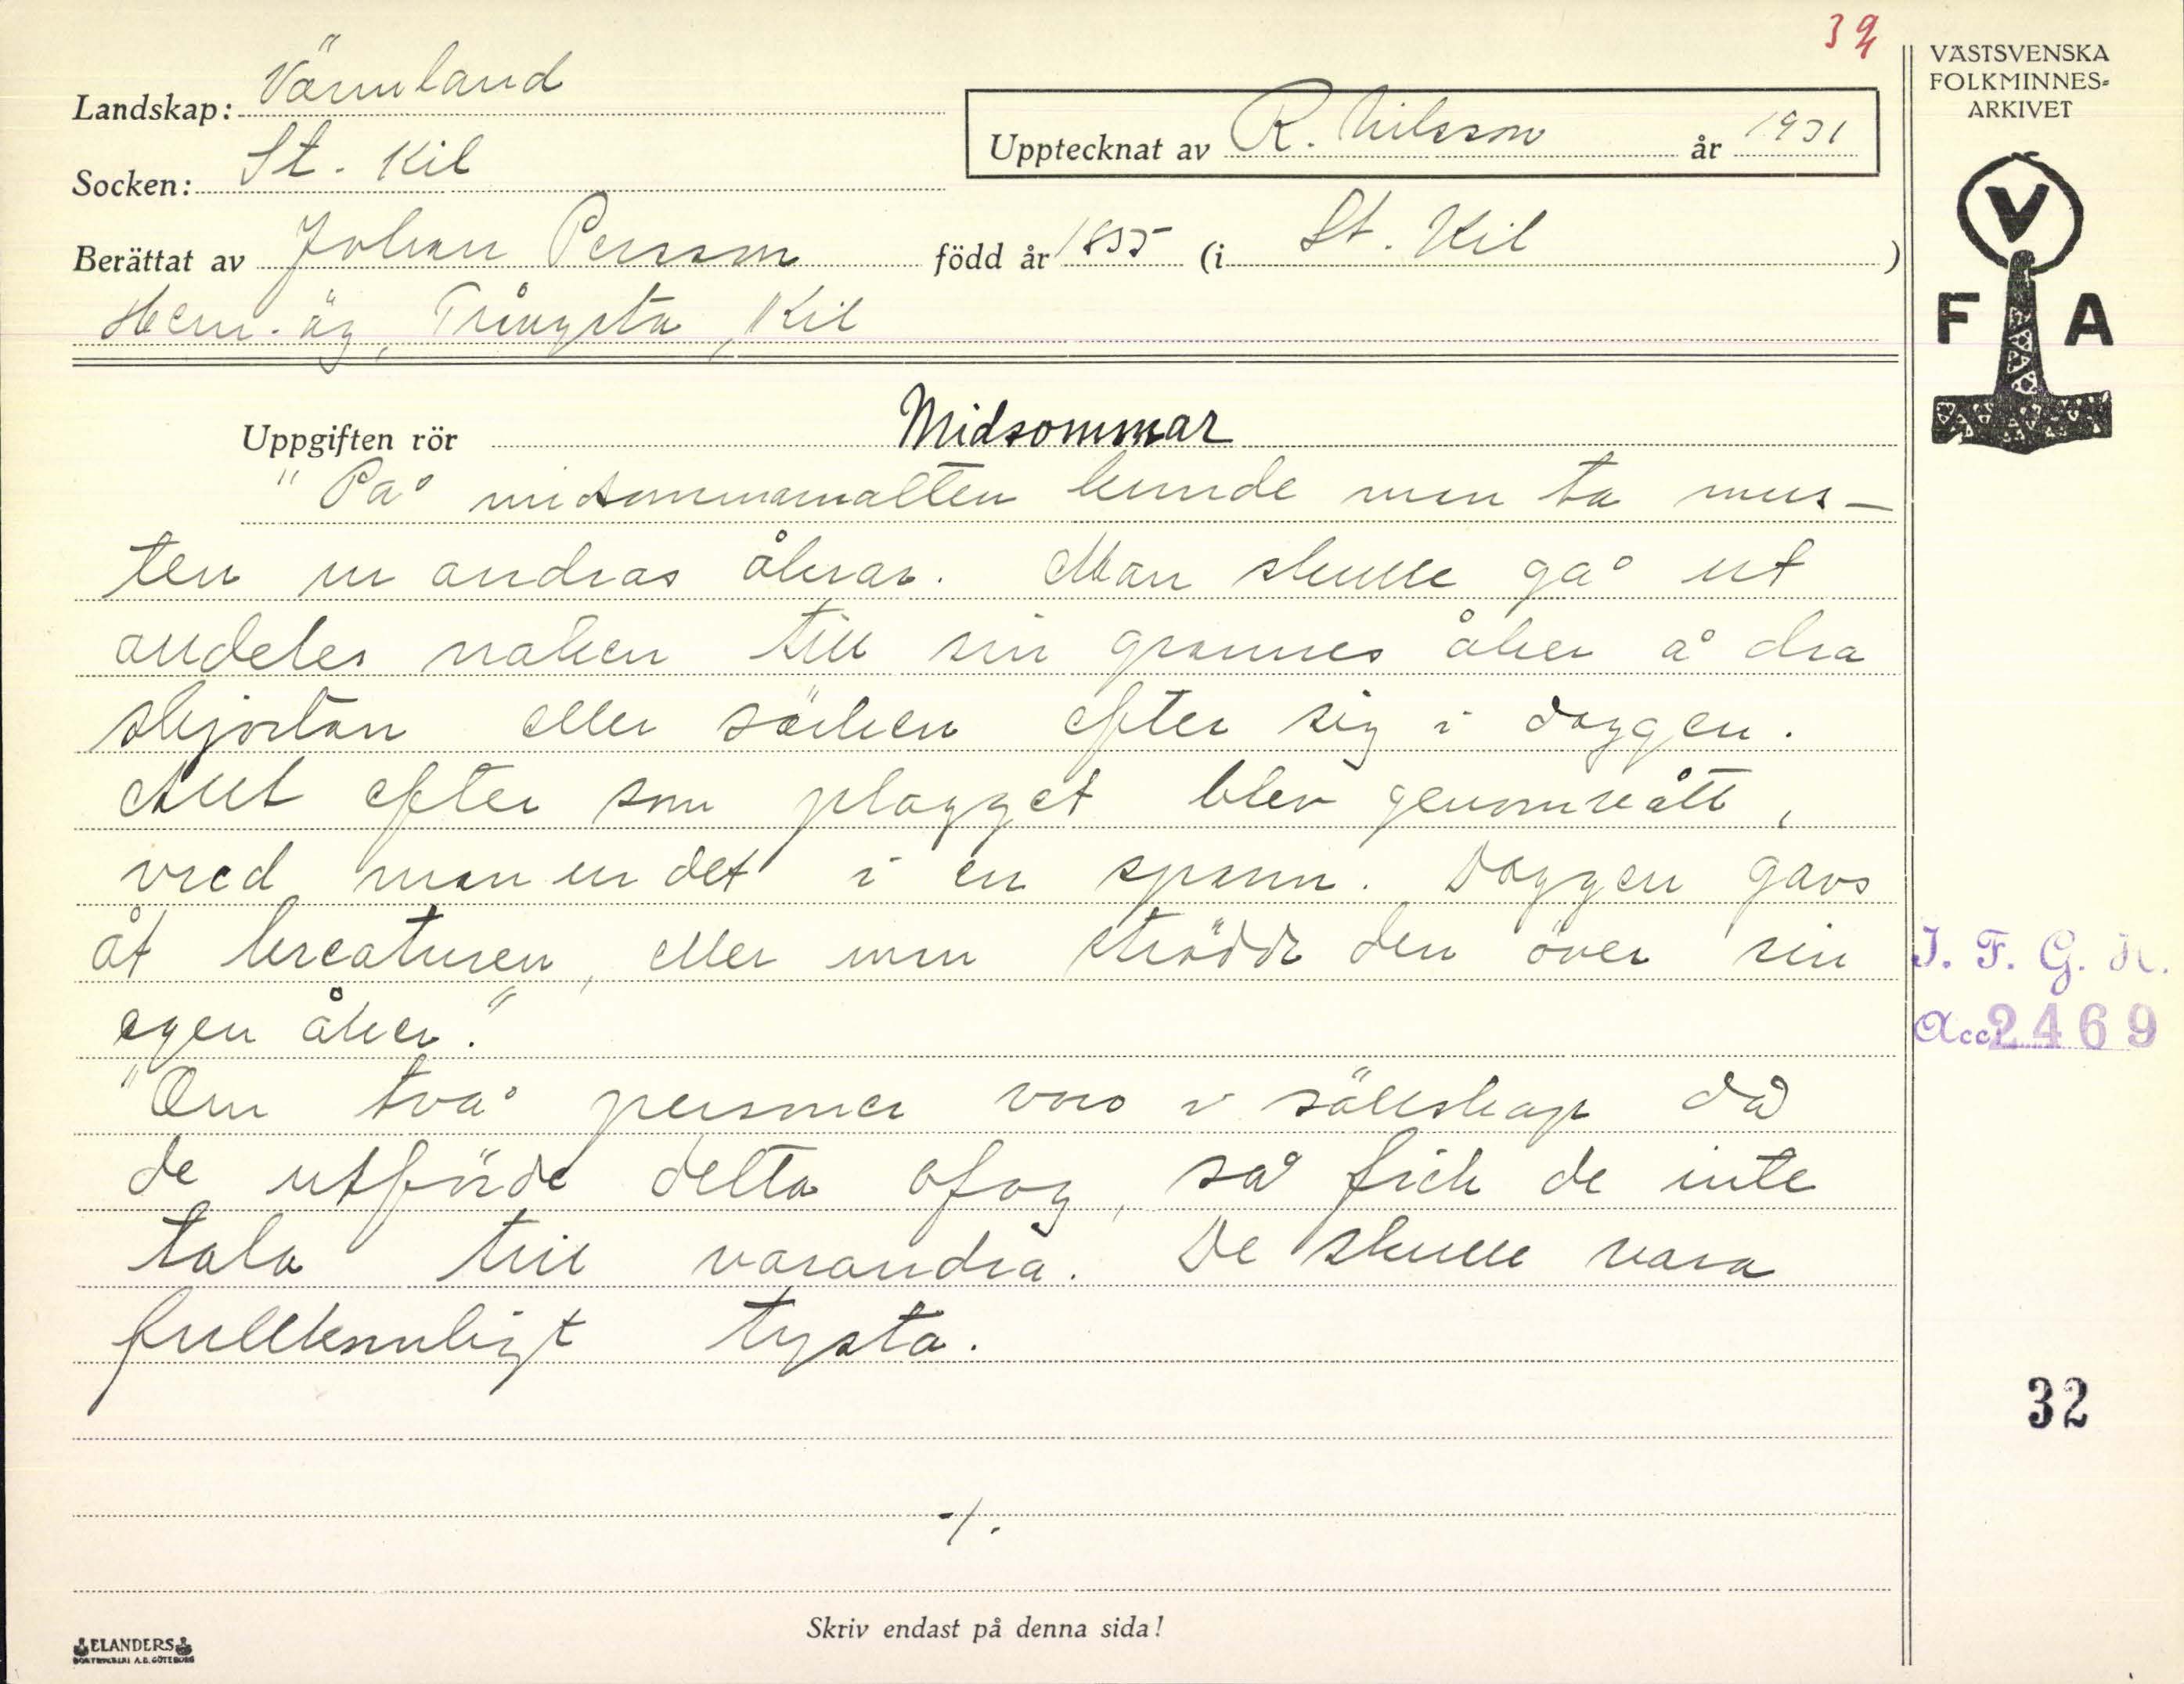 VÄSTSVENSKA
FOLKMINNES-
ARKIVET
Landskap: Värmland
Upptecknat av R. Nilsson år 1931
Socken: St. Kil
Berättat av Johan Persson född år 1855 (i St. Kil)
Hem. äg, Kil
V
F A
Uppgiften rör Midsommar
"På midsommarnatten kunde man ta mus-
ten ur andras åkrar. Man skulle gå ut
alldeles naken till sin grannes åker å dra
skjortan eller särken efter sig i daggen.
Allt efter som plagget blev genomvått,
vred man ur det i en spann. Daggen gavs
åt kreaturen, eller man strödde den över sin
egen åker."
"Om två personer voro i sällskap då
de utförde detta ofog, så fick de inte
tala till varandra. De skulle vara
fullkomligt tysta.
-/.
I. F. G. H.
Acc. 2469
32
Skriv endast på denna sida!
ELANDERS
BOKTRYCKERI A.B. GÖTEBORG